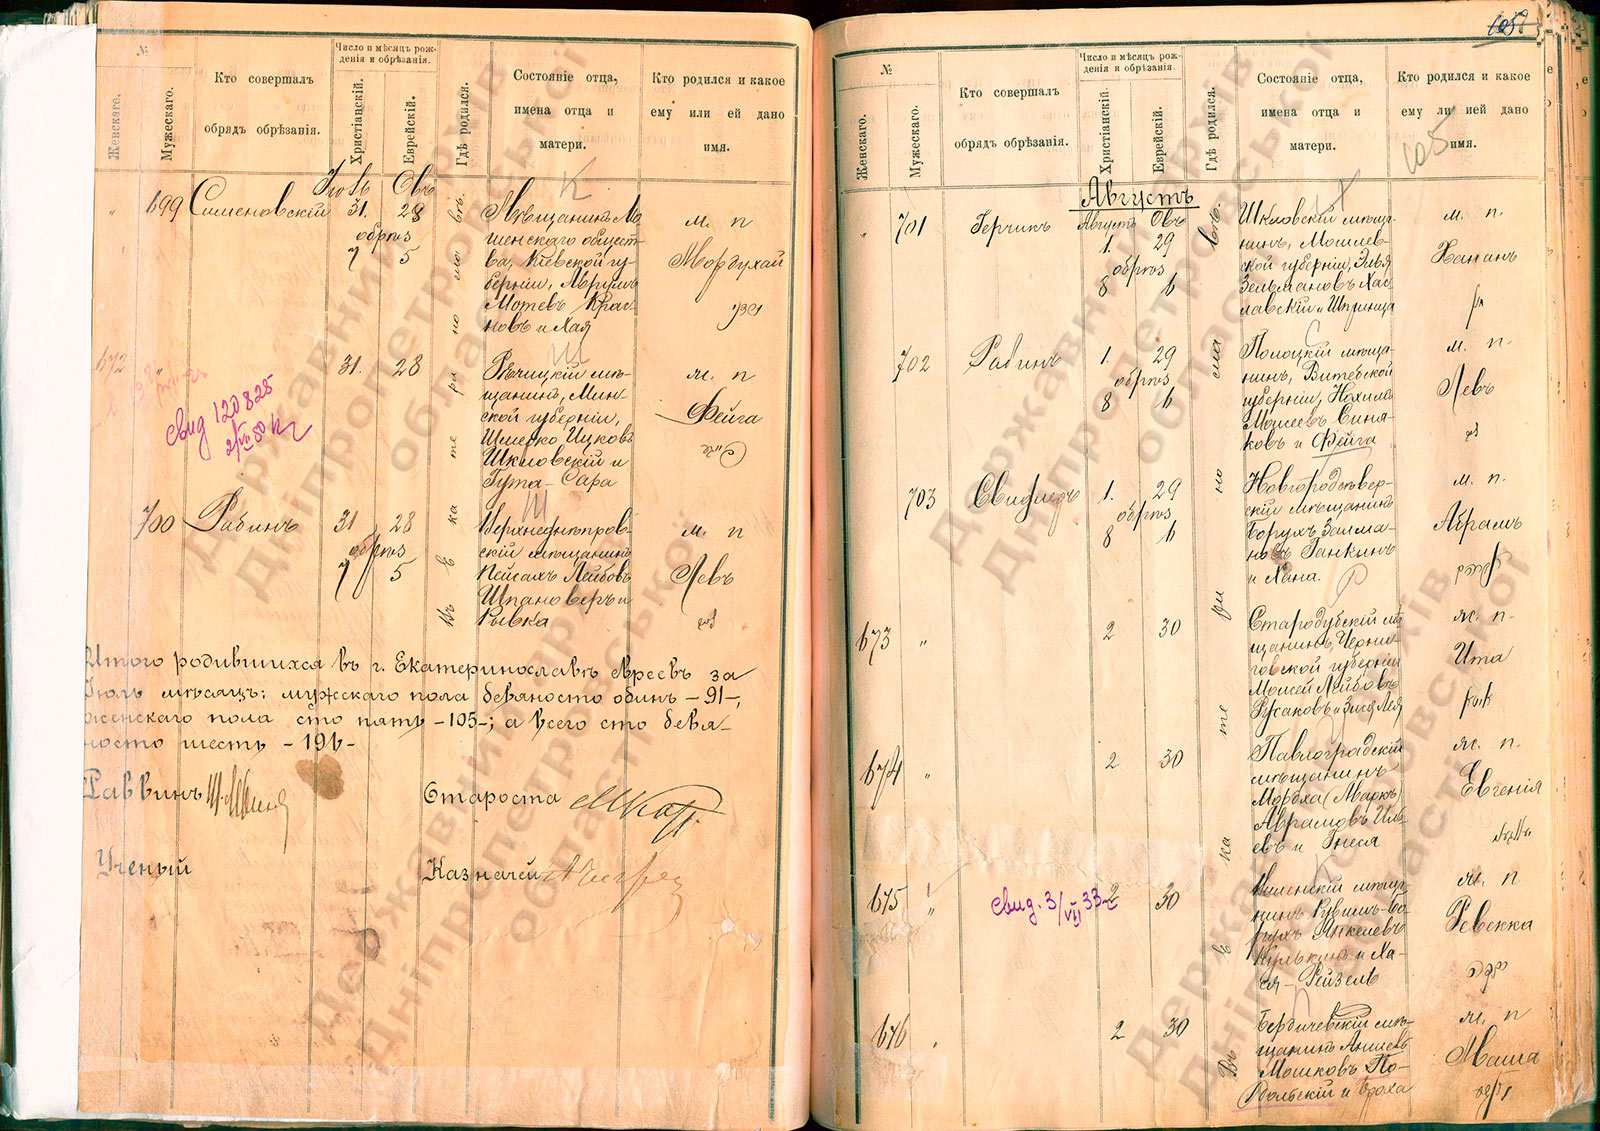 №
Женскаго.
Мужескаго.
Кто совершалъ
обрядъ обрѣзанія.
Число и мѣсяцъ рож-
денія и обрѣзанія.
Христіанскій.
Еврейскій.
Гдѣ родился.
Состояніе отца,
имена отца и
матери.
Кто родился и какое
ему или ей дано
имя.
Въ Екатеринославѣ.
Іюль Овъ
699 Сименовскій 31. 28
обрѣз
7 5
Мѣщанинъ Мо-
шенскаго общест-
ва, Кіевской гу-
берніи, Аврумъ
Мотевъ Крас-
новъ и Хая
м. п
Мордухай
672 „ 31. 28
свид 120825
2/VII 50
Рѣчицкій мѣ-
щанинъ, Мин-
ской губерніи,
Шмерко Ицковъ
Шкловскій и
Гута-Сара
ж. п
Фейга
700 Рабинъ 31 28
обрѣз
7 5
Верхнеднѣпров-
скій мѣщанинъ
Пейсахъ Лейбовъ
Шпановеръ и
Рывка
м. п
Левъ
Итого родившихся въ г. Екатеринославѣ Евреевъ за
Іюль мѣсяцъ: мужскаго пола девяносто одинъ -91-,
женскаго пола сто пять -105-; а всего сто девя-
носто шесть -196-
Раввинъ
Староста
Ученый
Казначей
105
№
Женскаго.
Мужескаго.
Кто совершалъ
обрядъ обрѣзанія.
Число и мѣсяцъ рож-
денія и обрѣзанія.
Христіанскій.
Еврейскій.
Гдѣ родился.
Состояніе отца,
имена отца и
матери.
Кто родился и какое
ему или ей дано
имя.
105
Въ Екатеринославѣ.
Августъ
Августъ Овъ
„ 701 Герчикъ 1. 29
обрѣз
8 6
Шкловскій мѣща-
нинъ, Могилев-
ской губерніи, Элья
Зельмановъ Хас-
лавскій и Шпринца
м. п.
Хананъ
702 Рабинъ 1. 29
обрѣз
8 6
Полоцкій мѣща-
нинъ, Витебской
губерніи, Нохимъ
Моисеевъ Синя-
ковъ и Фейга
м. п.
Левъ
703 Свифлеръ 1. 29
обрѣз
8 6
Новгородсѣвер-
скій мѣщанинъ
Борухъ Залма-
новъ Ганкинъ
и Хана.
м. п.
Абрамъ
673 „ 2 30
Стародубскій мѣ
щанинъ, Черни-
говской губерніи
Мовшей Лейбовъ
Русаковъ и Злея
ж. п.
Ита
674 „ 2 30
Павлоградскій
мѣщанинъ
Мордха (Маркъ)
Аврамовъ Иль-
евъ и Гнеся
ж. п.
Евгенія
675 „ свид. 3/VII 33 2 30
мѣща-
нинъ Рувимъ-Бо-
рухъ Янкелевъ
Кулькинъ и Ха-
ся-Рейзель
ж. п
Ревекка
676 „ 2 30
Бердичевскій мѣ-
щанинъ Аншель
Мошковъ По-
дольскій и Броха
ж. п
Маша
Державний архів
Дніпропетровської
області